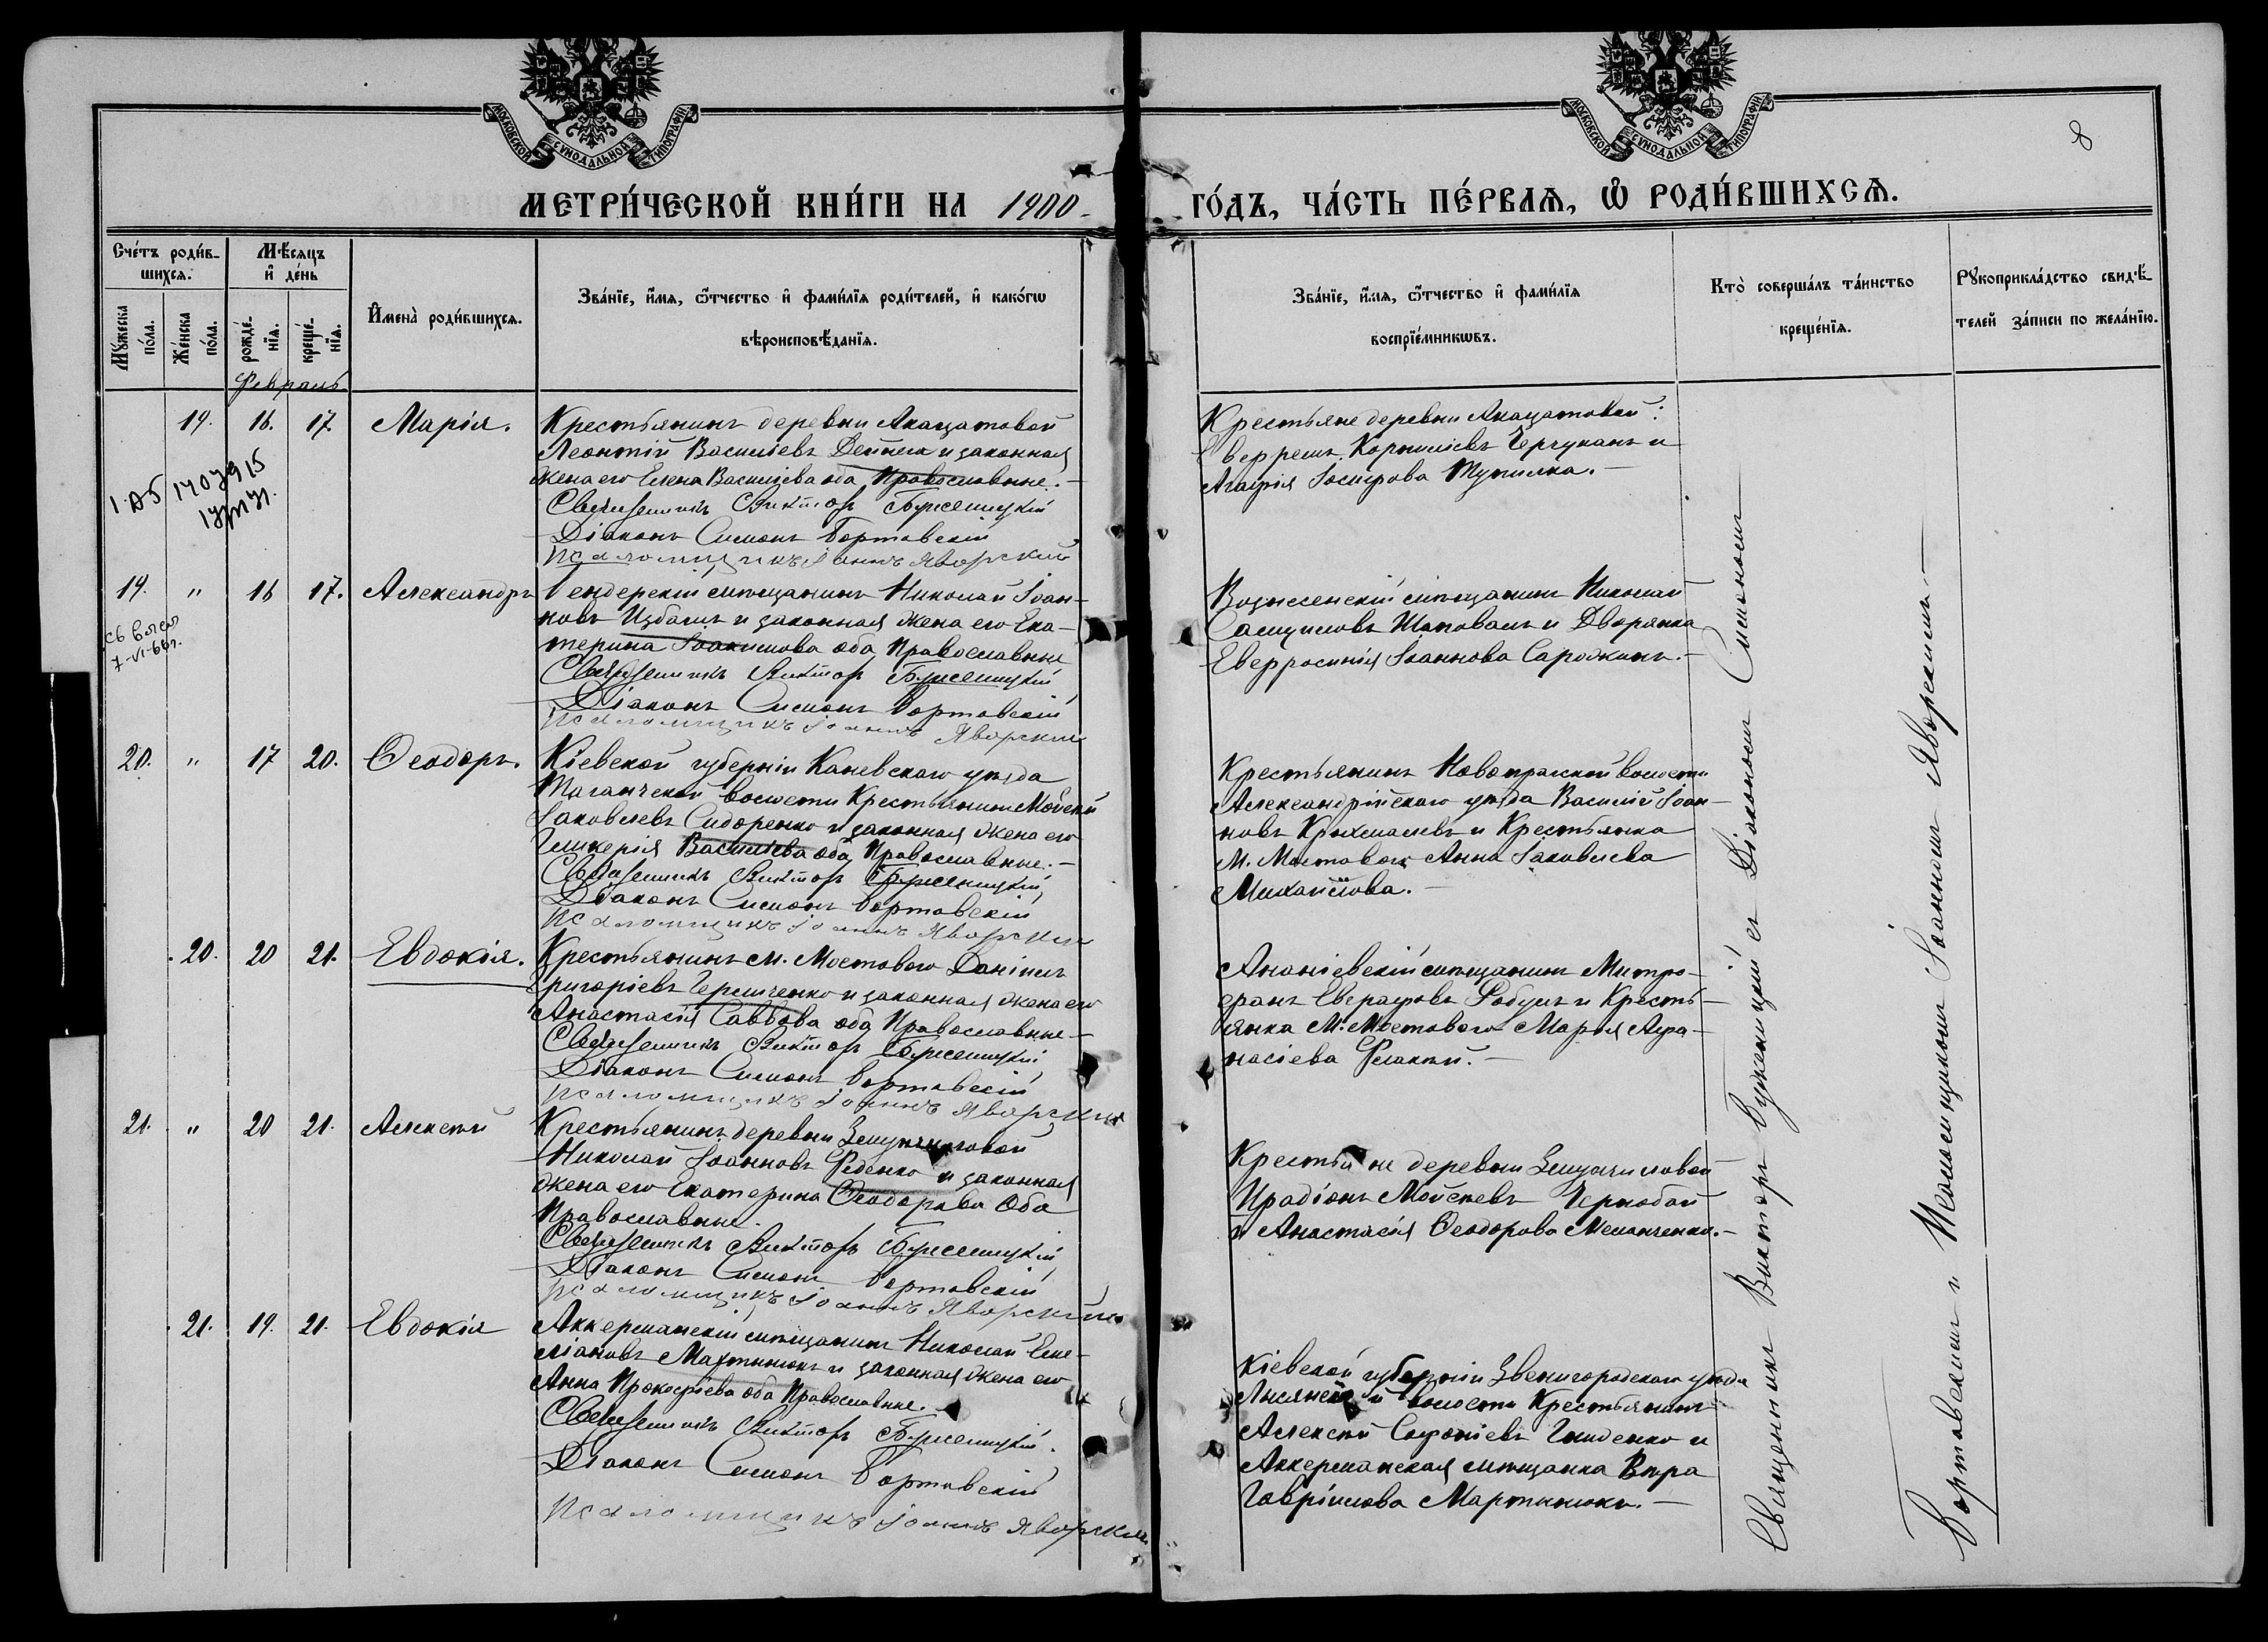 МОСКОВСКОЙ СѴНОДАЛЬНОЙ ТИПОГРАФІИ
МОСКОВСКОЙ СѴНОДАЛЬНОЙ ТИПОГРАФІИ
8
МЕТРИ́ЧЕСКОЙ КНИ́ГИ НА 1900 ГО́ДЪ, ЧА́СТЬ ПЕ́РВАѦ, Ѽ РОДИ́ВШИХСѦ.
Сче́тъ роди́в-
шихсѧ.
Мꙋ́жеска по́ла.
Же́нска по́ла.
Мѣ́сѧцъ
и҆ де́нь
рожде́-
нїѧ.
креще́-
нїѧ.
Февраль
И҆мена̀ роди́вшихсѧ.
Зва́нїе, и҆́мѧ, ѻ҆́тчество и҆ фами́лїѧ роди́телей, и҆ како́гѡ
вѣроисповѣ́данїѧ.
Зва́нїе, и҆́мѧ, ѻ҆́тчество и҆ фами́лїѧ
воспрїе́мникѡвъ.
Кто̀ соверша́лъ та́инство
креще́нїѧ.
Рꙋкоприкла́дство свидѣ́-
телей за́писи по жела́нїю.
19. 16. 17. Марія.
Крестьянинъ деревни Акацатовой
Леонтій Васильевъ Дейнега и законная
жена его Елена Васильева оба Православные.
Священникъ Викторъ Бужемицкій
Діаконъ Симонъ Бортовскій
Псаломщикъ Іоаннъ Яворскій
Крестьяне деревни Акацатовой:
Корниліевъ Чергуканъ и
Агафія Іосифова Тупилка.
19. " 16 17. Александръ
Бендерскій мѣщанинъ Николай Іоан-
новъ Избашъ и законная жена его Ека-
терина Іоакимова оба Православные
Священникъ Викторъ Бужемицкій
Діаконъ Симонъ Бортовскій
Псаломщикъ Іоаннъ Яворскій
7-VI-66г.
Вознесенскій мѣщанинъ Николай
Самуиловъ Шаповалъ и Дворянка
Евфросинія Іоаннова Сарожинъ.
20. " 17 20. Ѳеодоръ.
Кіевской губерніи Каневскаго уѣзда
Таганчской волости Крестьянинъ Мойсей
Іаковлевъ Сидоренко и законная жена его
Гликерія Васильева оба Православные.
Священникъ Викторъ Бужемицкій
Діаконъ Симонъ Бортовскій
Псаломщикъ Іоаннъ Яворскій
Крестьянинъ Новопражской волости
Александрійскаго уѣзда Василій Іоан-
новъ Крыхмалевъ и Крестьянка
М. Мостового Анна Іаковлева
Михайлова.
20. 20 21. Евдокія.
Крестьянинъ м. Мостового Даніилъ
Григоріевъ Герещенко и законная жена его
Анастасія Саввова оба Православные
Священникъ Викторъ Бужемицкій
Діаконъ Симонъ Бортовскій
Псаломщикъ Іоаннъ Яворскій
Ананіевскій мѣщанинъ Митро-
фанъ Евграфовъ Робулъ и Кресть-
янка М. Мостового Марія Аѳа-
насіева
21. " 20 21. Алексѣй
Крестьянинъ деревни
Николай Іоанновъ Реденко и законная
жена его Екатерина Ѳеодорова Оба
Православные.
Священникъ Викторъ Бужемицкій
Діаконъ Симонъ Бортовскій
Псаломщикъ Іоаннъ Яворскій
Крестьяне деревни
Иродіонъ Мойсеевъ Чернобай
и Анастасія Ѳеодорова Меланченко.
21. 19. 21. Евдокія
Аккерманскій мѣщанинъ Николай Еме-
ліановъ Мартынюкъ и законная жена его
Анна Прокофіева оба Православные.
Священникъ Викторъ Бужемицкій.
Діаконъ Симонъ Бортовскій
Псаломщикъ Іоаннъ Яворскій
Кіевской губерніи Звенигородскаго уѣзда
Лысянской волости Крестьянинъ
Алексѣй Софоніевъ Гниденко и
Аккерманская мѣщанка Вѣра
Гавріилова Мартынюкъ.
Священникъ Викторъ Бужемицкій съ Діакономъ Симономъ
Бортовскимъ и Псаломщикомъ Іоанномъ Яворскимъ.